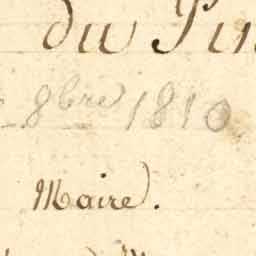 du
8bre 1810
Maire).